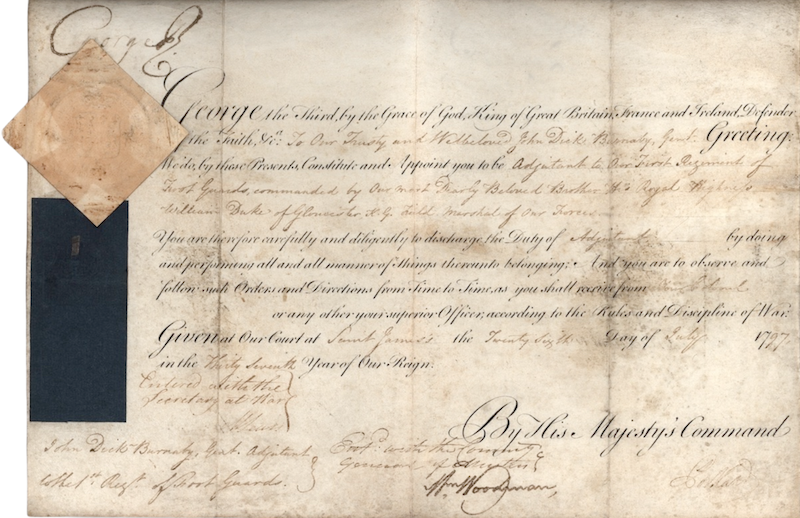 George R
George the Third, by the Grace of God, King of Great Britain, France and Ireland, Defender
of the Faith, &c. To Our Trusty and Welbeloved John Dick Burnaby, Gent. Greeting:
We do, by these Presents, Constitute and Appoint you to be Adjutant to Our First Regiment of
Foot Guards, commanded by Our most Dearly Beloved Brother His Royal Highness
William Duke of Glocester, K.G. Field Marshal of Our Forces
You are therefore carefully and diligently to discharge the Duty of Adjutant by doing
and performing all and all manner of Things thereunto belonging; And you are to observe and
follow such Orders and Directions from Time to Time, as you shall receive from your Colonel
or any other your superior Officer, according to the Rules and Discipline of War.
Given at Our Court at Saint James's the Twenty Sixth Day of July 1797
in the Thirty Seventh Year of Our Reign.
Entered with the
Secretary at War
By His Majesty's Command
John Dick Burnaby, Gent. Adjutant
to the 1st Regt. of Foot Guards.
Entd. with the Commissy.
General of Musters
Wm Woodman,